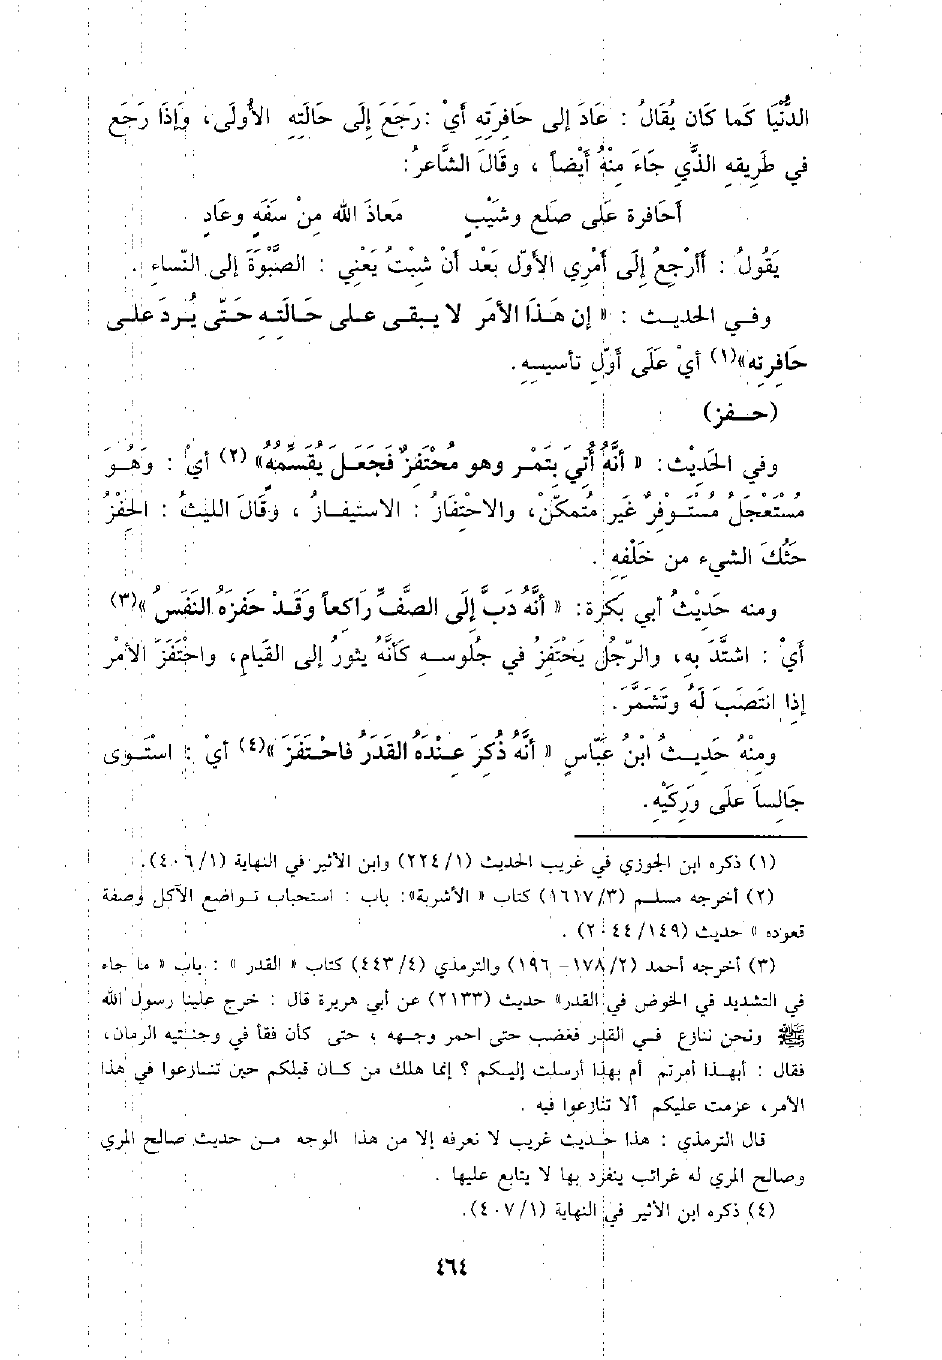 الدُّنْيَا كَما كَان يُقَالُ : عَادَ إلى حَافِرَتِهِ أيْ :رَجَعَ إِلَى حَالَتِهِ الأُولَى، وَإِذَا رَجَع
في طَرِيقِهِ الذَّي جَاءَ مِنْهُ أَيْضاً ، وقَالَ الشَّاعرُ:
أَحَافرة عَلَى صَلَعٍ وشَيْبٍ مَعَاذَ الله مِنْ سَفَهٍ وعَادِ
يَقُولُ : أأرْجِعُ إِلَى أَمْرِي الأوّلِ بَعْدَ أنْ شِبْتُ يَعْنِي : الصَّبْوَةَ إلى النّساءِ .
وفي الحديث : « إن هَذَا الأمَر لا يبقى على حَالَتِه حَتّى يُردَ على
حَافِرتِه»(١) أيْ عَلَى أوّلِ تأسيسِهِ.
(حفز)
وفي الحَدِيْث: « أنَّهُ أُتيَ بِتَمْر وهو مُحْتَفِزٌ فَجَعَلَ يُقَسِّمُهُ» (٢) أيْ : وَهُوَ
مُسْتَعْجِلُ مُسْتَوْفِزٌ غَير مُتَمكّنْ، والاحْتِفَازُ : الاستيفازُ ، وقَالَ الليثُ : الحَفْزُ
حَثُكَ الشيء من خَلْفِهِ .
ومنه حَدِيْثُ أبي بَكْرة: « أنَّهُ دَبَّ إِلَى الصَّفِّ رَاكعاً وَقَدْ حَفزهُ النَفَسُ »(٣)
أيْ : اشتَّدَ بِهِ، والرّجُل يَحْتَفِزُ في جُلُوسه كَأَنَّهُ يثورُ إلى القيامِ، واحْتَفَزَ الأمْر
إذا انتَصَبَ لَهُ وتَشَمَّرَ.
ومِنْهُ حَدِيثُ ابْنُ عَبَّاسٍ « أنَّهُ ذُكِرَ عِنْدَهُ القَدَرُ فاحْتَفَزَ »(٤) أيْ : اسْتَوى
جَالِساً عَلى وَرِكَيْهِ.
(١) ذكره ابن الجوزي في غريب الحديث (٢٢٤/١) وابن الأثير في النهاية (٤٠٦/١).
(٢) أخرجه مسلم (١٦١٧/٣) كتاب « الأشربة»: باب : استحباب تواضع الآكل وصفة
قعوده » حديث (٢٠٤٤/١٤٩) .
(٣) أخرجه أحمد (١٧٨/٢ – ١٩٦) والترمذي (٤٤٣/٤) كتاب « القدر » : باب « ما جاء
في التشديد في الخوض في القدر» حديث (٢١٣٣) عن أبي هريرة قال : خرج علينا رسول الله
ﷺ ونحن نتنازع في القدر فغضب حتى احمر وجهه ؛ حتى كأن فقأ في وجنتيه الرمان،
فقال : أبهذا أمرتم أم بهذا أرسلت إليكم ؟ إنما هلك من كان قبلكم حين تنازعوا في هذا
الأمر، عزمت عليكم ألا تنازعوا فيه .
قال الترمذي : هذا حديث غريب لا نعرفه إلا من هذا الوجه من حديث صالح المري
وصالح المري له غرائب ينفرد بها لا يتابع عليها .
(٤) ذكره ابن الأثير في النهاية (٤٠٧/١).
٤٦٤